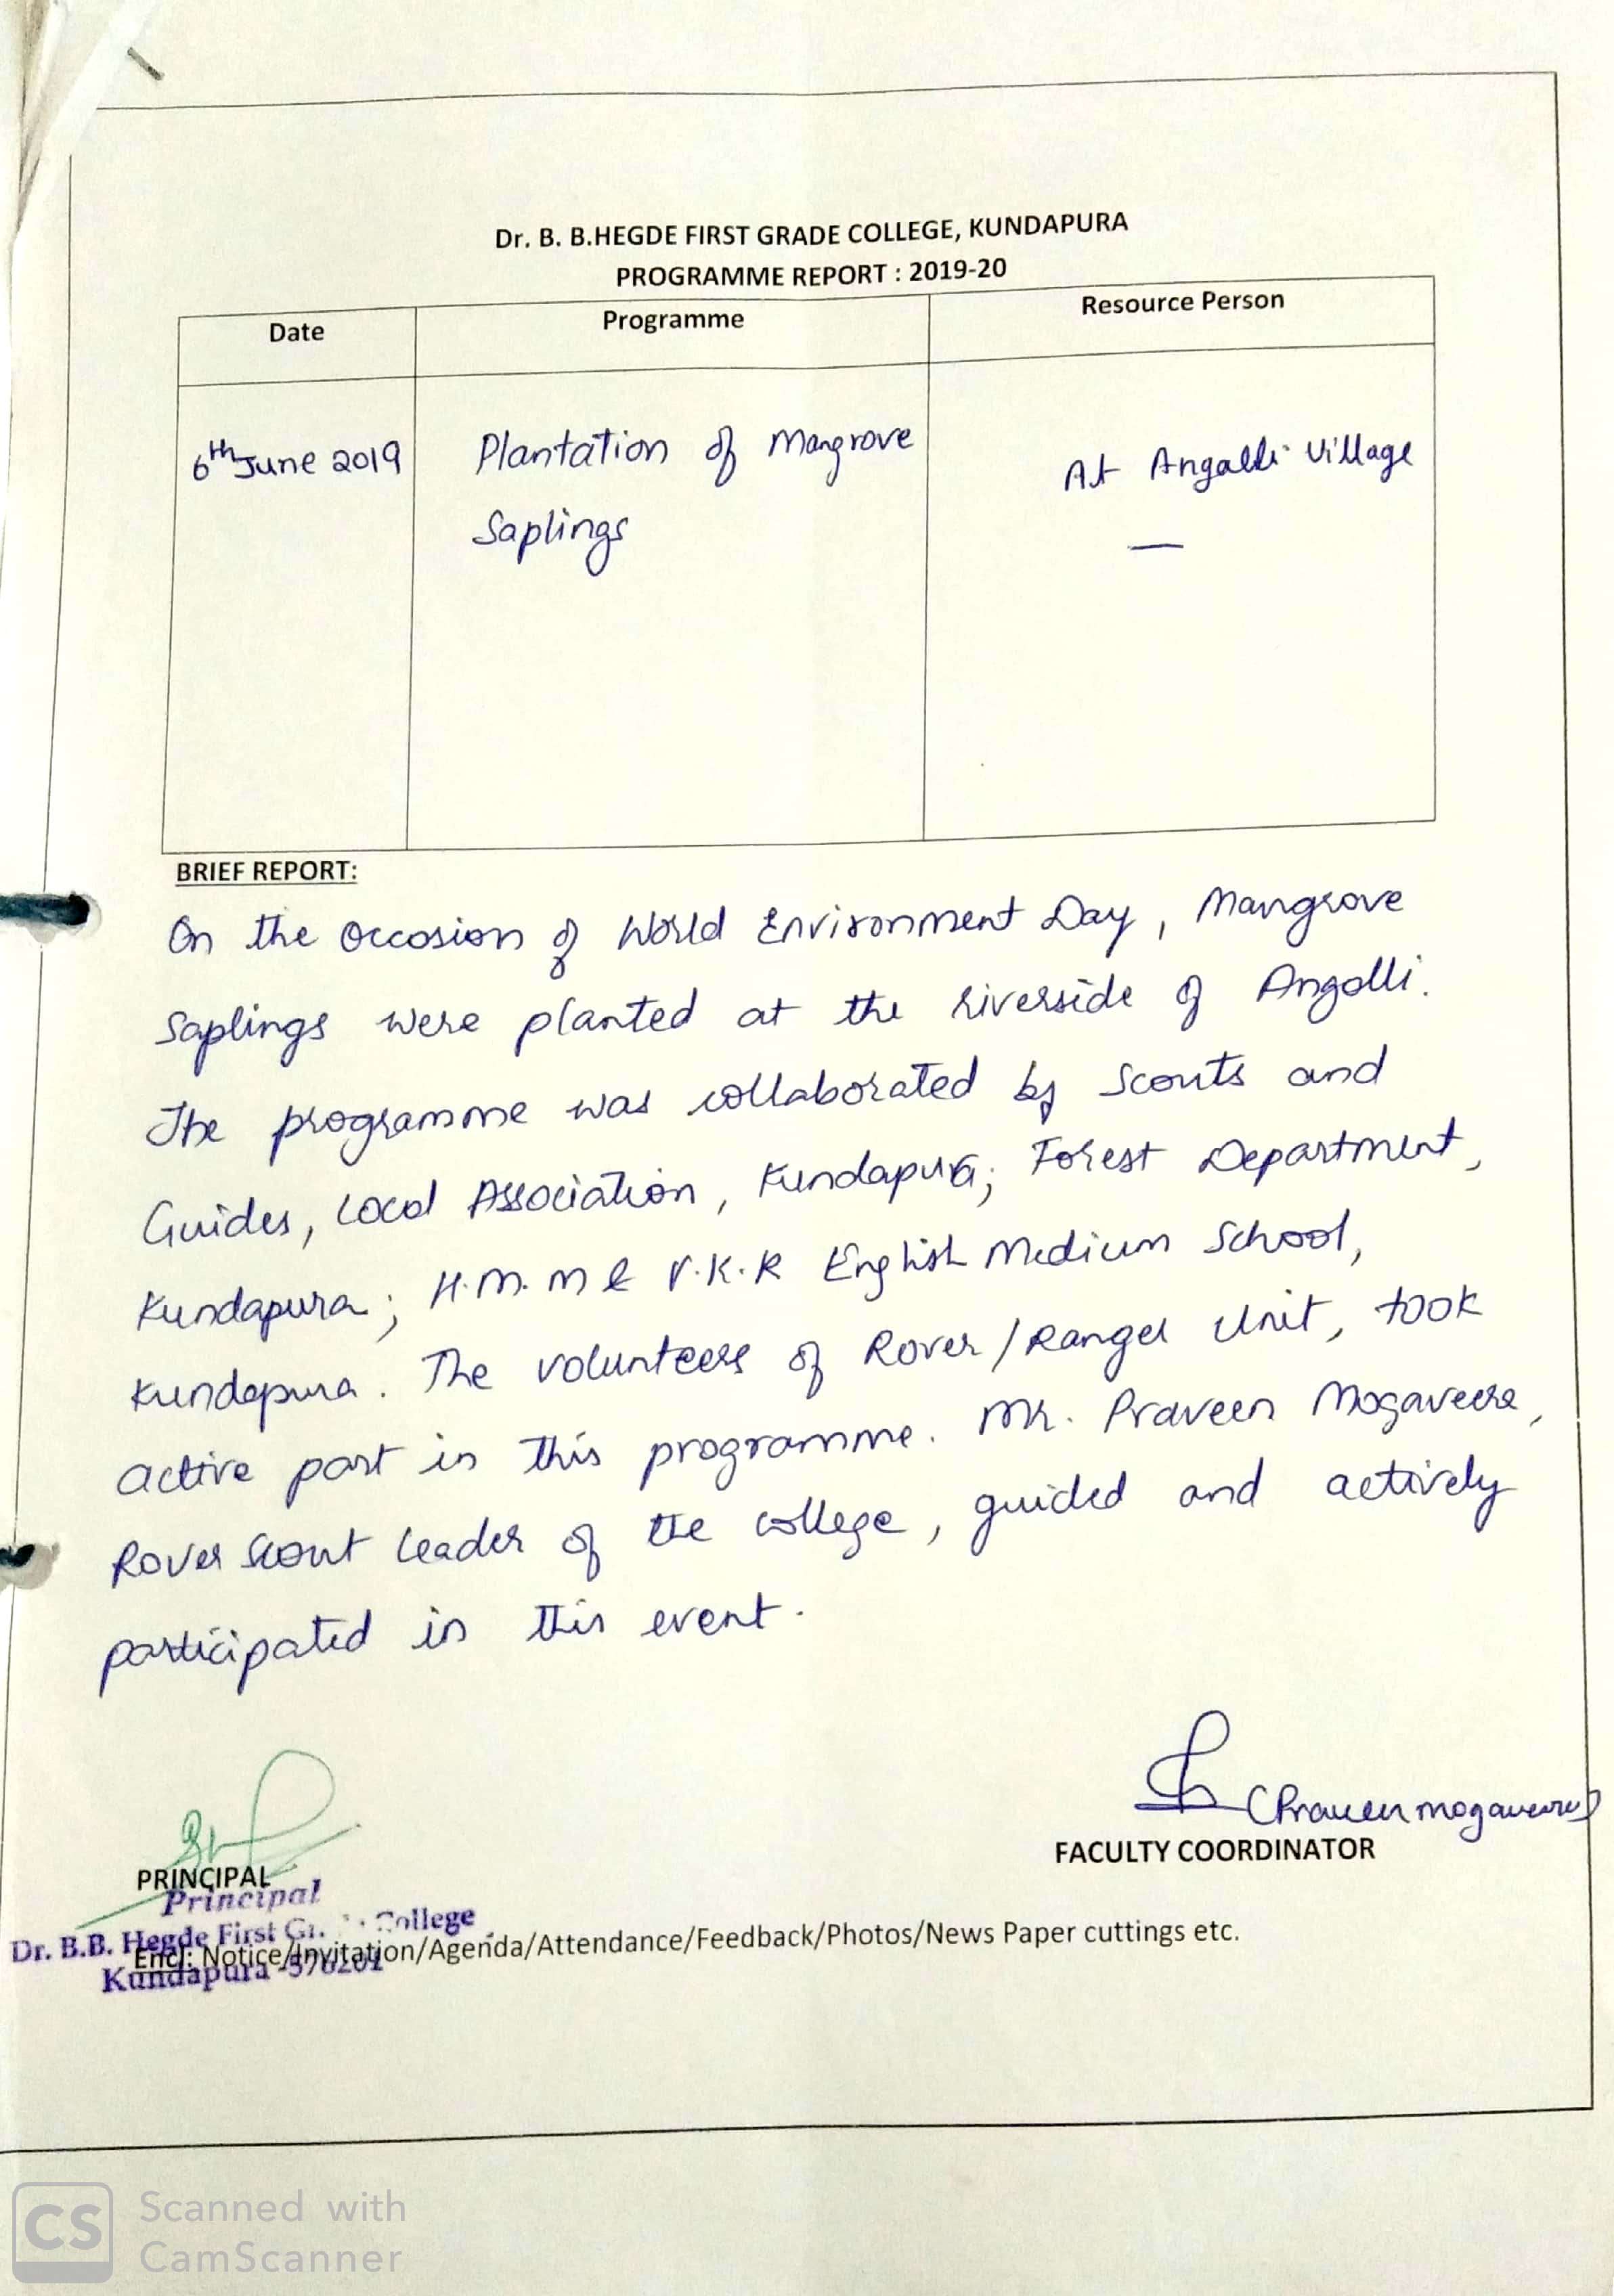 Dr. B. B.HEGDE FIRST GRADE COLLEGE, KUNDAPURA
PROGRAMME REPORT : 2019-20
Date Programme Resource Person
6th June 2019 Plantation of Mangrove At Village
Saplings —
BRIEF REPORT:
On the Occasion of World Environment Day, Mangrove
Saplings were planted at the riverside of Angalli.
The programme was collaborated by Scouts and
Guides, Local Association, Kundapura; Forest Department,
Kundapura; H.M.M & V.K.R English Medium School,
Kundapura. The volunteers of Rover/Ranger Unit, took
active part in this programme. Mr. Praveen Mogaveera,
Rover Scout Leader of the college, guided and actively
participated in this event.
(Praveen mogaveera)
PRINCIPAL FACULTY COORDINATOR
Principal
Dr. B.B. Hegde First College
Encl: Notice/Invitation/Agenda/Attendance/Feedback/Photos/News Paper cuttings etc.
Kundapura -576201
CS Scanned with
CamScanner